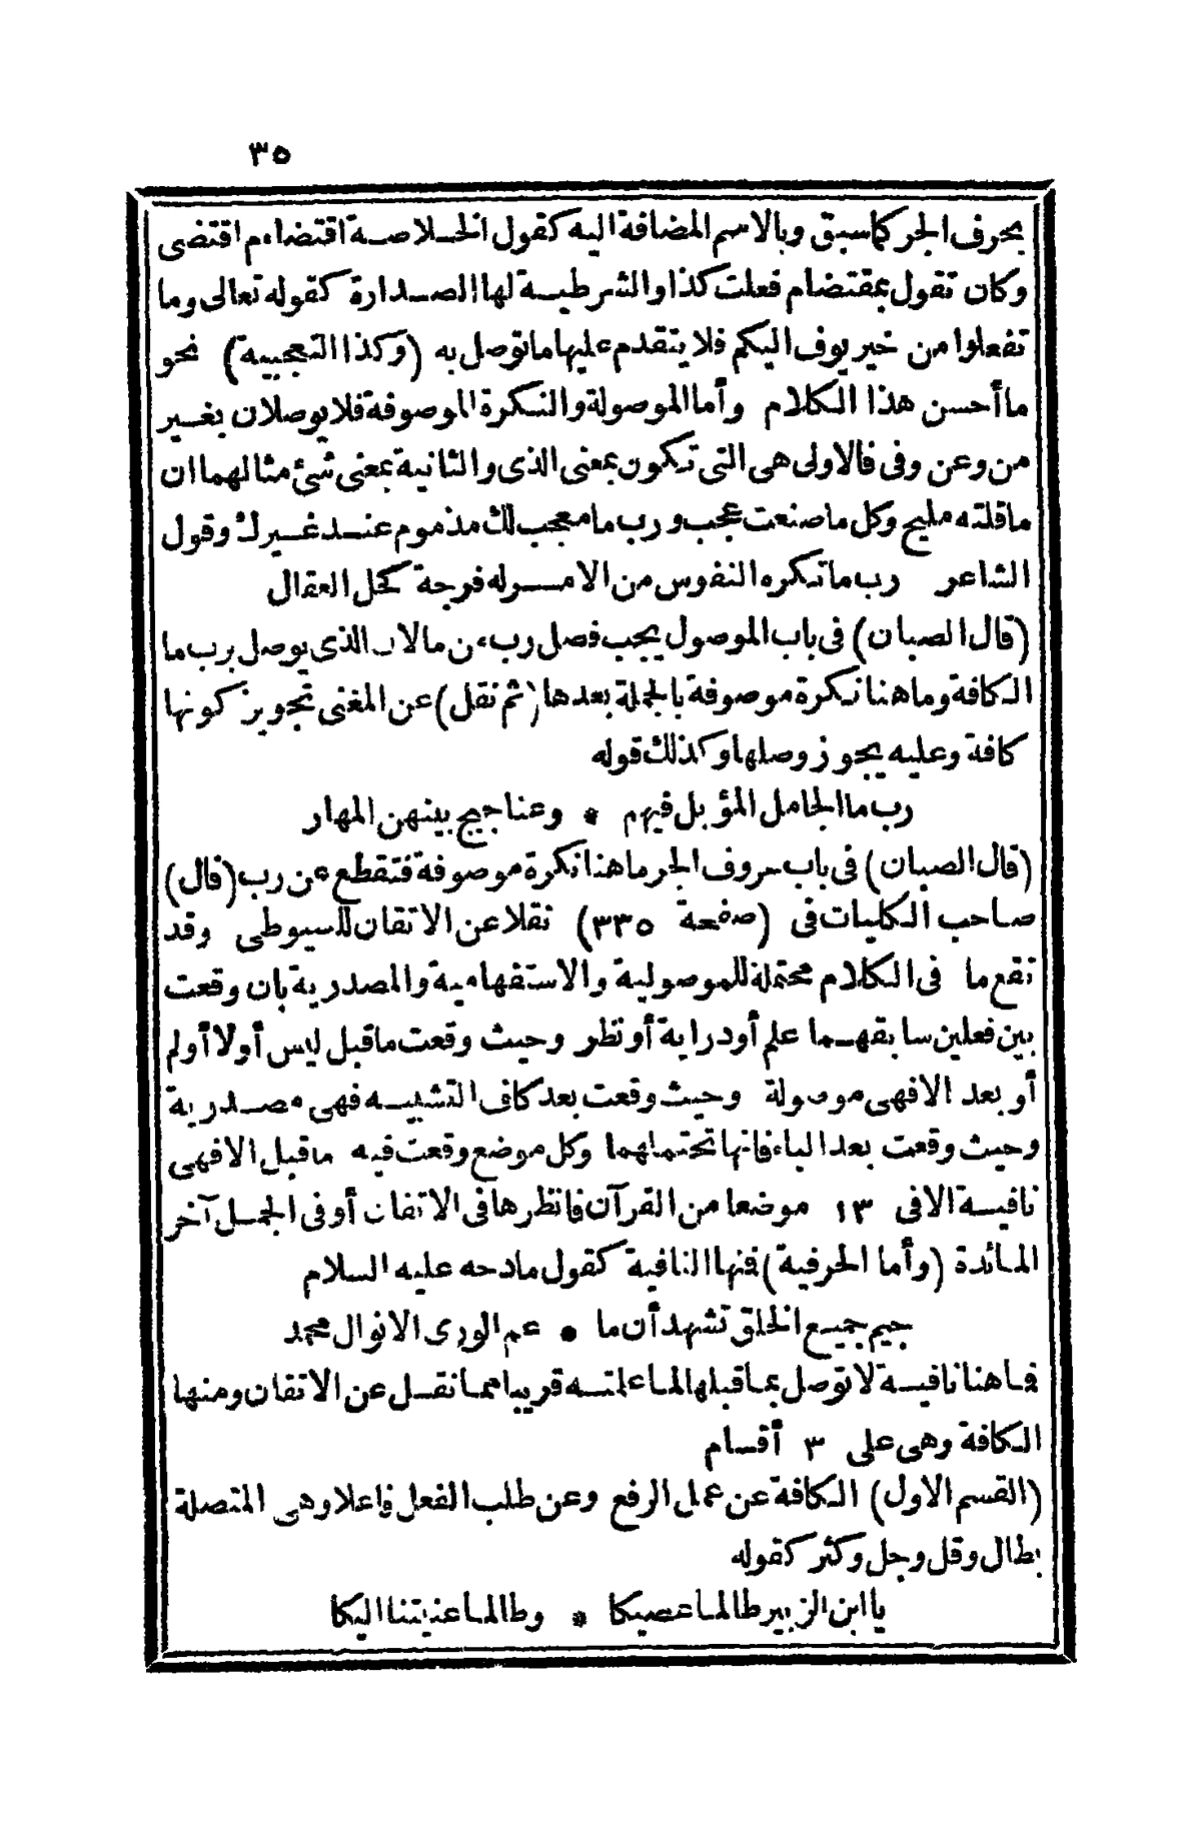 ٣٥
بحرف الجر كماسبق وبالاسم المضافة اليه كقول الخلاصة اقتضاءم اقتضى
وكان تقول بمقتضام فعلت كذا والشرطية لها الصدارة كقوله تعالى وما
تفعلوا من خير يوف اليكم فلا يتقدم عليها ما توصل به (وكذا التعجبية) نحو
ما أحسن هذا الكلام وأما الموصولة والنكرة الموصوفة فلا يوصلان بغير
من وعن وفى فالاولى هى التى تكون بمعنى الذى والثانية بمعنى شئ مثالهما ان
ما قلته مليح وكل ما صنعت عجب ورب ما معجب لك مذموم عند غيرك وقول
الشاعر رب ما تكره النفوس من الامـر له فرجة كحل العقال
(قال الصبان) فى باب الموصول يجب فصل رب من ما لان الذى يوصل برب ما
الكافة وما هنا نكرة موصوفة بالجملة بعدها (ثم نقل) عن المغنى تجويز كونها
كافة وعليه يجوز وصلها وكذلك قوله
رب ما الجامل المؤبل فيهم * وعناجيج بينهن المهار
(قال الصبان) فى باب حروف الجر ما هنا نكرة موصوفة فتقطع من رب (قال)
صاحب الكليات فى (صفحة ٣٣٥) نقلا عن الاتقان للسيوطى وقد
تقع ما فى الكلام محتملة للموصولية والاستفهامية والمصدرية بان وقعت
بين فعلين سابقهما علم أو دراية أو نظر وحيث وقعت ما قبل ليس أو لا أو لم
أو بعد الا فهى موصولة وحيث وقعت بعد كاف التشبيه فهى مصدرية
وحيث وقعت بعد الباء فانها تحتملهما وكل موضع وقعت فيه ما قبل الا فهى
نافية الا فى ١٣ موضعا من القرآن فانظرها فى الاتقان أو فى الجمل آخر
المائدة (وأما الحرفية) فمنها النافية كقول مادحه عليه السلام
جيم جميع الخلق تشهد أن ما * عم الورى الا نوال محمد
فما هنا نافية لا توصل بما قبلها لما علمته قريبا مما نقل عن الاتقان ومنها
الكافة وهى على ٣ أقسام
(القسم الاول) الكافة عن عمل الرفع وعن طلب الفعل فاعلا وهى المتصلة
بطال وقل وجل وكثر كقوله
يا ابن الزبير طالما عصيكا * وطالما عنيتنا اليكا